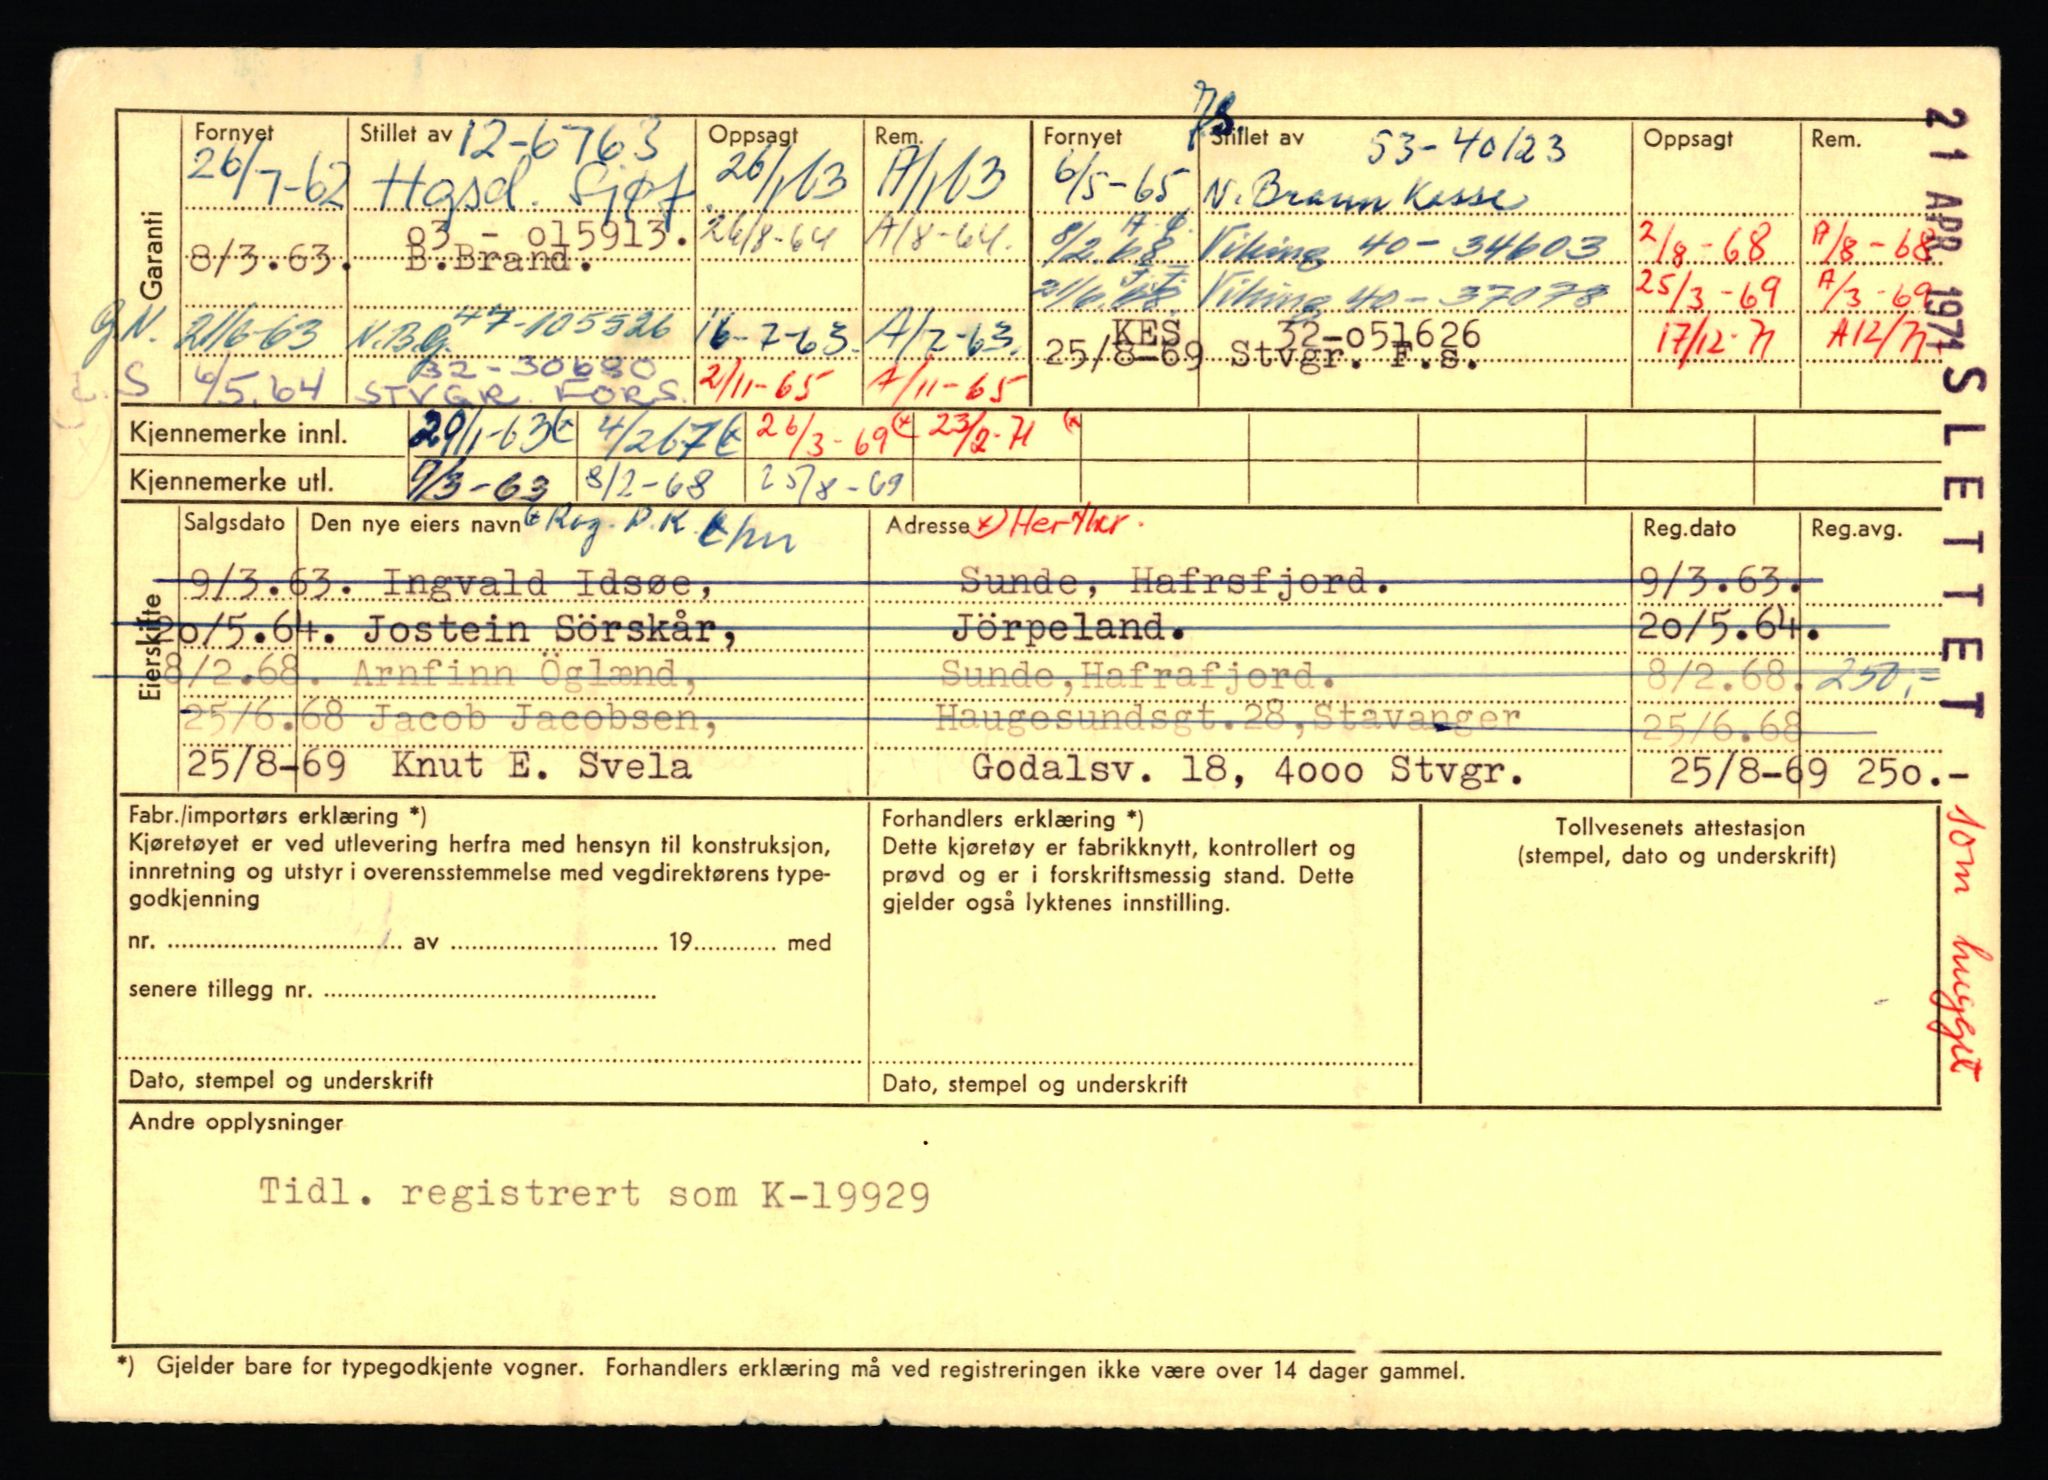 Garanti
Fornyet Stillet av 12-6763 Oppsagt Rem.
26/7-62 Hgsd. Sjøf. 26/1 63 A/1 63
o3 - o15913. 26/8-64 A/8-64.
8/3.63. B.Brand.
G.N. 21/6-63 N.B.G. 47-105526 16-7-63. A/7-63.
S 6/5.64 32-30680 STVGR. FORS. 2/11-65 A/11-65
Fornyet Stillet av 53-40123 Oppsagt Rem.
6/5-65 N. Brann Kasse
8/2.68 Viking 40-34603 2/8-68 A/8-68
21/6.68. Viking 40-37078 25/3-69 A/3-69
KES 32-o51626 17/12-71 A12/71
25/8-69 Stvgr. F.s.
Kjennemerke innl. 29/1-63 4/2 67 26/3-69 23/2-71
Kjennemerke utl. 9/3-63 8/2-68 25/8-69
Eierskifte
Salgsdato Den nye eiers navn Adresse Reg.dato Reg.avg.
9/3.63. Ingvald Idsøe, Sunde, Hafrsfjord. 9/3.63.
20/5.64. Jostein Sörskår, Jörpeland. 20/5.64.
8/2.68. Arnfinn Öglænd, Sunde,Hafrafjord. 8/2.68. 250,=
25/6.68 Jacob Jacobsen, Haugesundsgt.28,Stavanger 25/6.68
25/8-69 Knut E. Svela Godalsv. 18, 4ooo Stvgr. 25/8-69 25o.-
Fabr./importørs erklæring *)
Kjøretøyet er ved utlevering herfra med hensyn til konstruksjon,
innretning og utstyr i overensstemmelse med vegdirektørens type-
godkjenning
nr. .................. av .................. 19............ med
senere tillegg nr. ..................
Dato, stempel og underskrift
Forhandlers erklæring *)
Dette kjøretøy er fabrikknytt, kontrollert og
prøvd og er i forskriftsmessig stand. Dette
gjelder også lyktenes innstilling.
Dato, stempel og underskrift
Tollvesenets attestasjon
(stempel, dato og underskrift)
Andre opplysninger
Tidl. registrert som K-19929
*) Gjelder bare for typegodkjente vogner. Forhandlers erklæring må ved registreringen ikke være over 14 dager gammel.
21 APR 1974 SLETTET som hugget